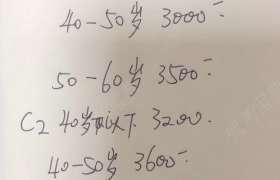 40-50岁 3000一
50-60岁 3500一
C2 40岁以下 3200.
40-50岁 3600一